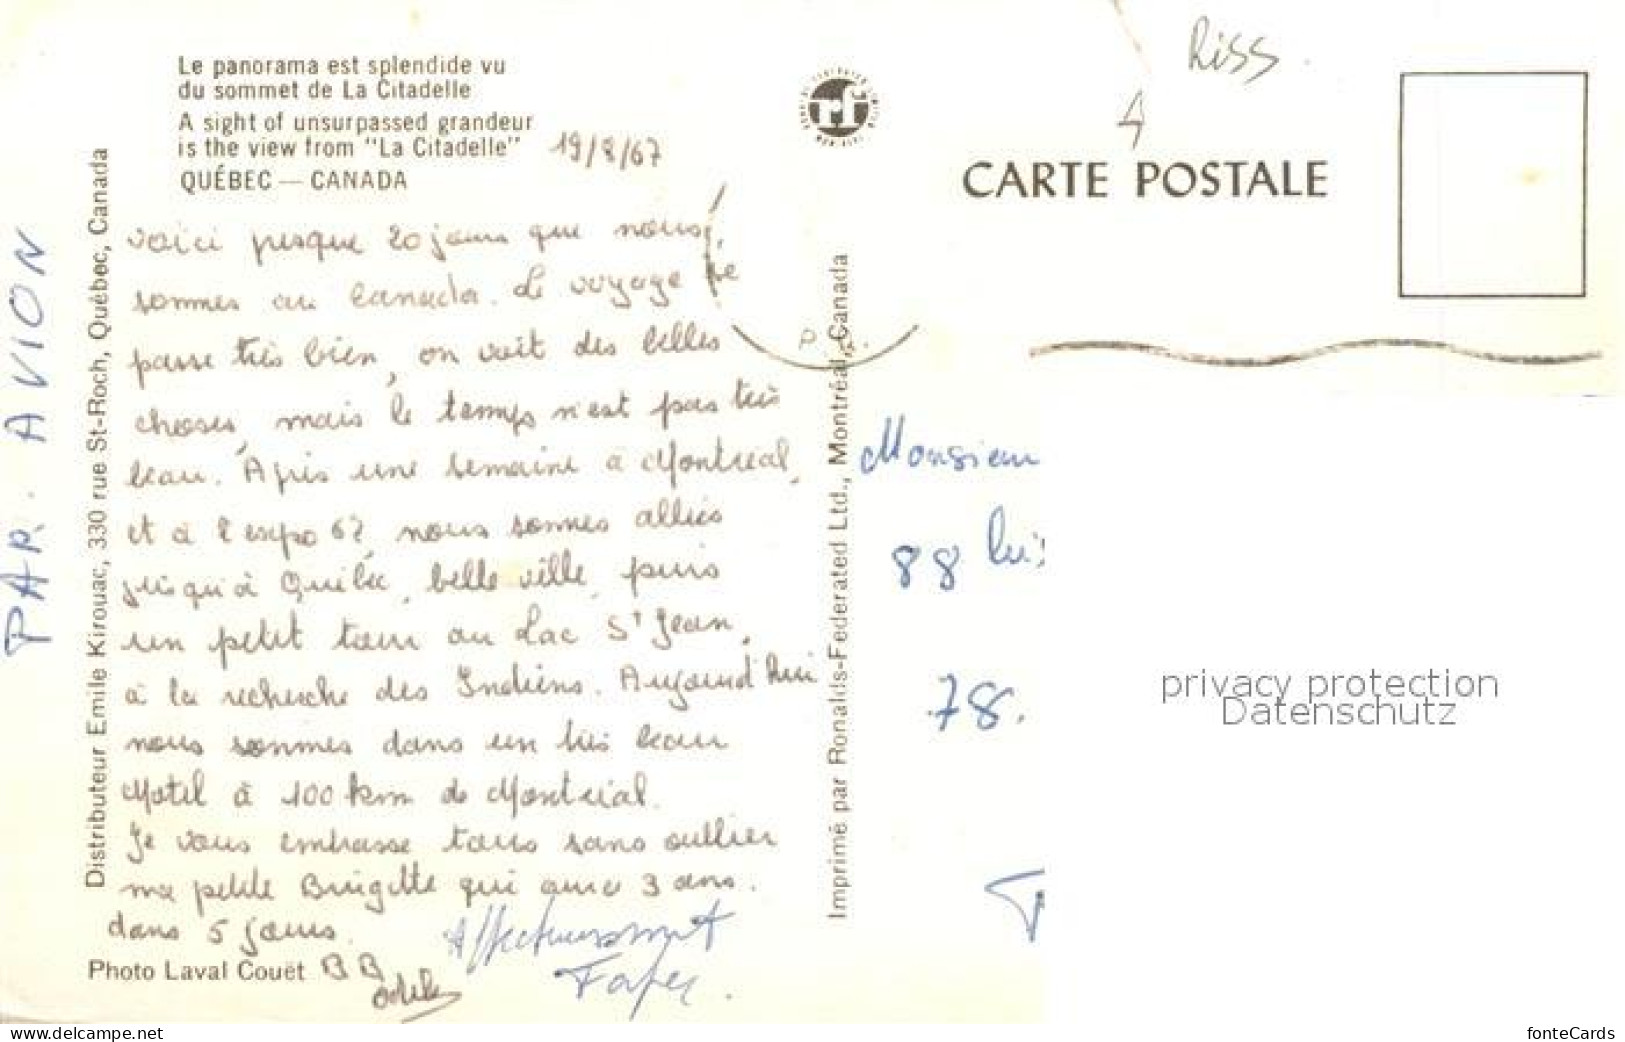 Le panorama est splendide vu
du sommet de La Citadelle
A sight of unsurpassed grandeur
is the view from "La Citadelle"
QUÉBEC — CANADA
19/8/67
voici presque 20 jours que nous
sommes au Canada. Le voyage se
passe très bien, on voit des belles
choses, mais le temps n'est pas très
beau. Après une semaine à Montréal,
et à l'expo 67, nous sommes allés
jusqu'à Québec, belle ville, puis
un petit tour au Lac St Jean,
à la recherche des Indiens. Aujourd'hui
nous sommes dans un très beau
Motel à 100 km de Montréal.
Je vous embrasse tous sans oublier
ma petite Brigitte qui aura 3 ans.
dans 5 jours.
Affectueusement
Photo Laval Couët
PAR AVION
Distributeur Emile Kirouac, 330 rue St-Roch, Québec, Canada
Imprimé par Ronalds-Federated Ltd., Montréal, Canada
rf
Riss.
4
CARTE POSTALE
Monsieur
88
78.
privacy protection
Datenschutz
www.delcampe.net
fonteCards